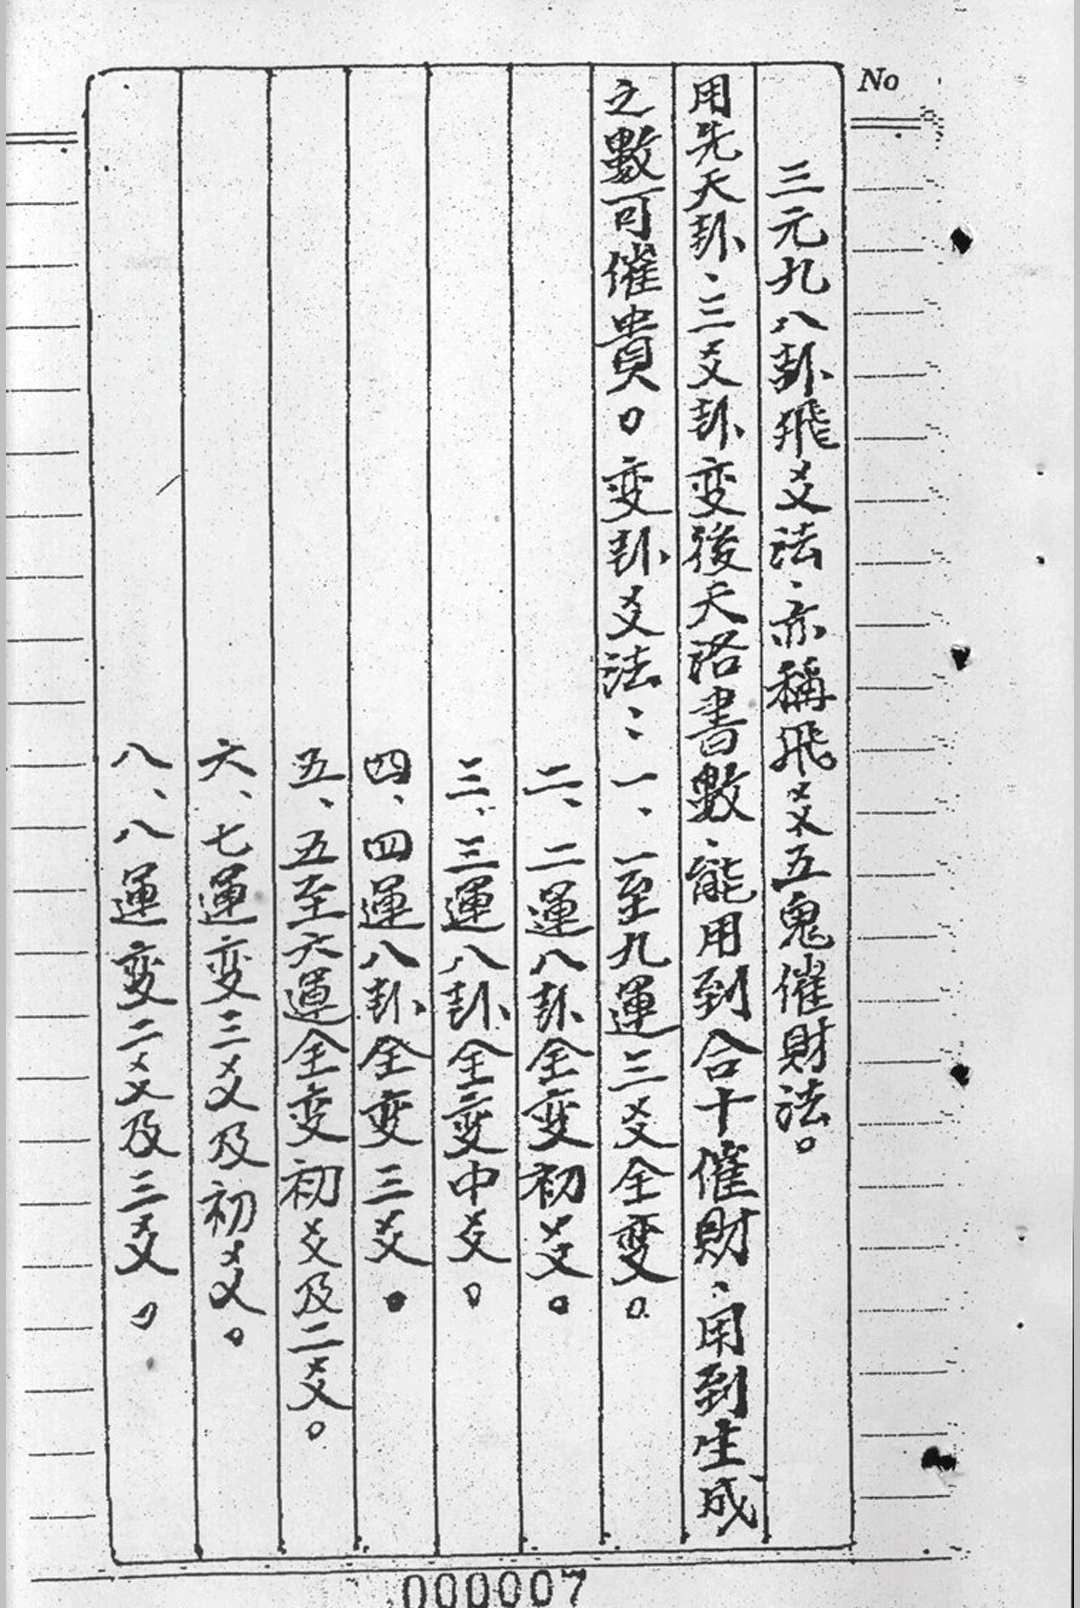 No
三元九八卦飛爻法、亦稱飛爻五鬼催財法。
用先天卦、三爻卦変後天洛書數、能用到合十催財、用到生成
之數可催貴。変卦爻法：一、一至九運三爻全変。
二、二運八卦全変初爻。
三、三運八卦全変中爻。
四、四運八卦全変三爻。
五、五至六運全変初爻及二爻。
六、七運変三爻及初爻。
八、八運変二爻及三爻。
000007